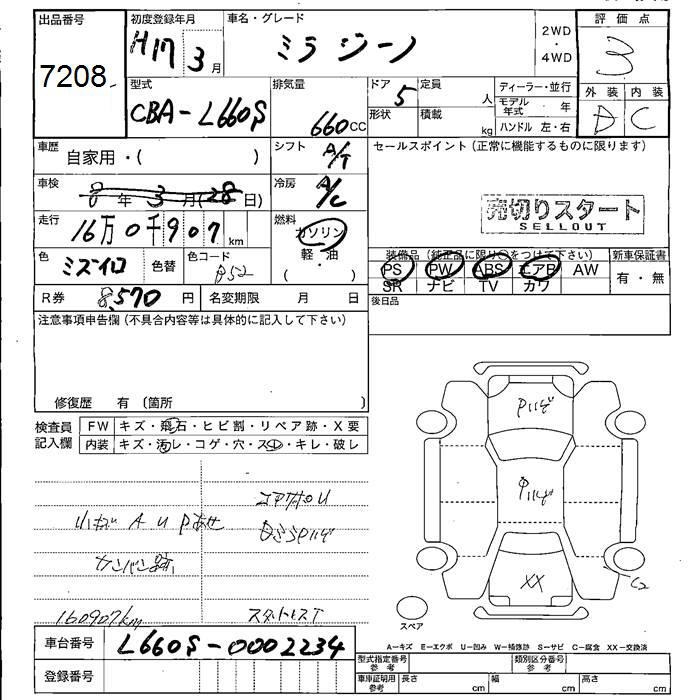 出品番号
7208
初度登録年月
H17 3月
車名・グレード
ミラ ジーノ
2WD
・
4WD
評価点
3
型式
CBA-L660S
排気量
660cc
ドア
5
定員
人
形状
積載
kg
ディーラー・並行
モデル年式 年
ハンドル 左・右
外装 内装
D C
車歴
自家用・( )
シフト
A/T
セールスポイント(正常に機能するものに限ります)
車検
8年 3月(28日)
冷房
A/C
売切りスタート
SELLOUT
走行
16万0千907km
燃料
ガソリン
軽・油
( )
色
ミズイロ
色替
色コード
B52
装備品(純正品に限り○をつけて下さい)
PS PW ABS エアB AW
SR ナビ TV カワ
新車保証書
有・無
R券
8,570円
名変期限 月 日
後日品
注意事項申告欄(不具合内容等は具体的に記入して下さい)
修復歴 有 〔箇所 〕
検査員記入欄
FW キズ・飛石・ヒビ割・リペア跡・X要
内装 キズ・汚レ・コゲ・穴・スレ・キレ・破レ
小キズ A U Pあせ
カンバン跡
160907km
コアサポU
スタートレスT
Pハゲ
Pハゲ
XX
C2
スペア
車台番号
L660S-0002234
A-キズ E-エクボ U-凹み W-補修跡 S-サビ C-腐食 XX-交換済
登録番号
型式指定番号 参考
類別区分番号 参考
車庫証明用 参考
長さ cm
幅 cm
高さ cm